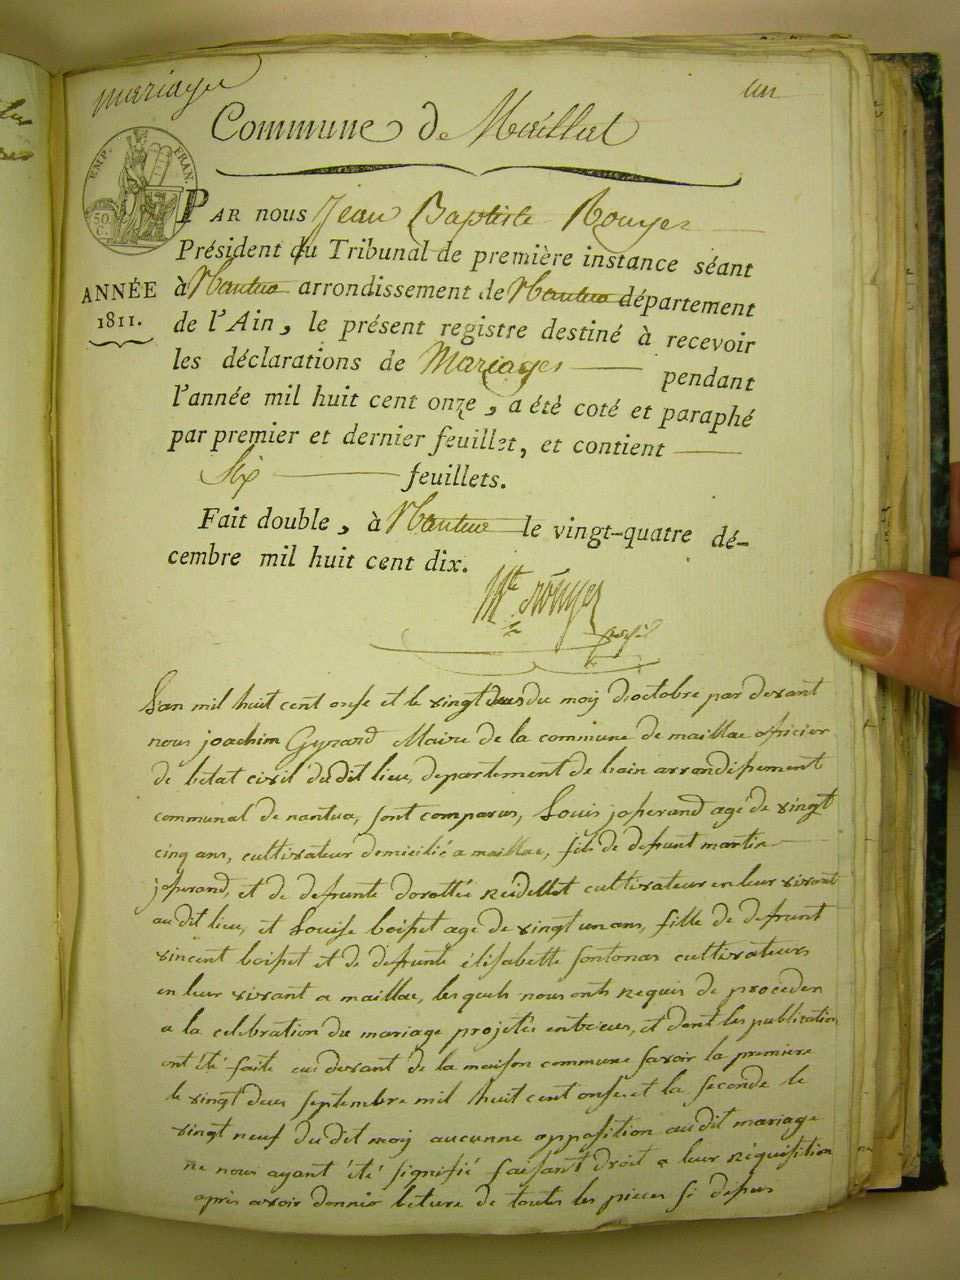 mariage
un
Commune de Maillat
EMP. FRAN.
50 C.
PAR nous Jean Baptiste Rouyer
Président du Tribunal de première instance séant
ANNÉE
1811.
à Nantua arrondissement de Nantua département
de l'Ain, le présent registre destiné à recevoir
les déclarations de Mariages pendant
l'année mil huit cent onze, a été coté et paraphé
par premier et dernier feuillet, et contient
Six feuillets.
Fait double, à Nantua le vingt-quatre dé-
cembre mil huit cent dix.
Bte Rouyer
L'an mil huit cent onse et le vingt deus du moij doctobre par devant
nous joachim Gyrard Maire de la commune de maillac officier
de l'etat civil du dit lieu, departement de lain arrondissement
communal de nantua, sont comparus, Louis josserand agé de vingt
cinq ans, cultivateur demicilié a maillac, fils de defunt martin
josserand, et de defunte dorottée reidellet cultivateur en leur vivant
au dit lieu, et Louise boisset age de vingt un ans, fille de defunt
vincent boisset et de defunte élisabette fontonas cultivateurs
en leur vivant a maillac, lesquels nous onts requis de proceder
a la celebration du mariage projetés entreeus, et dont les publication
ont été faite au devant de la maison commune savoir la premiere
le vingt deus septembre mil huit cent onse et la seconde le
vingt neuf du dit moij aucunne opposition au dit mariage
ne nous ayant été signifié faisant droit a leur requisition
après avoir donner leture de toutes les pieces si depus